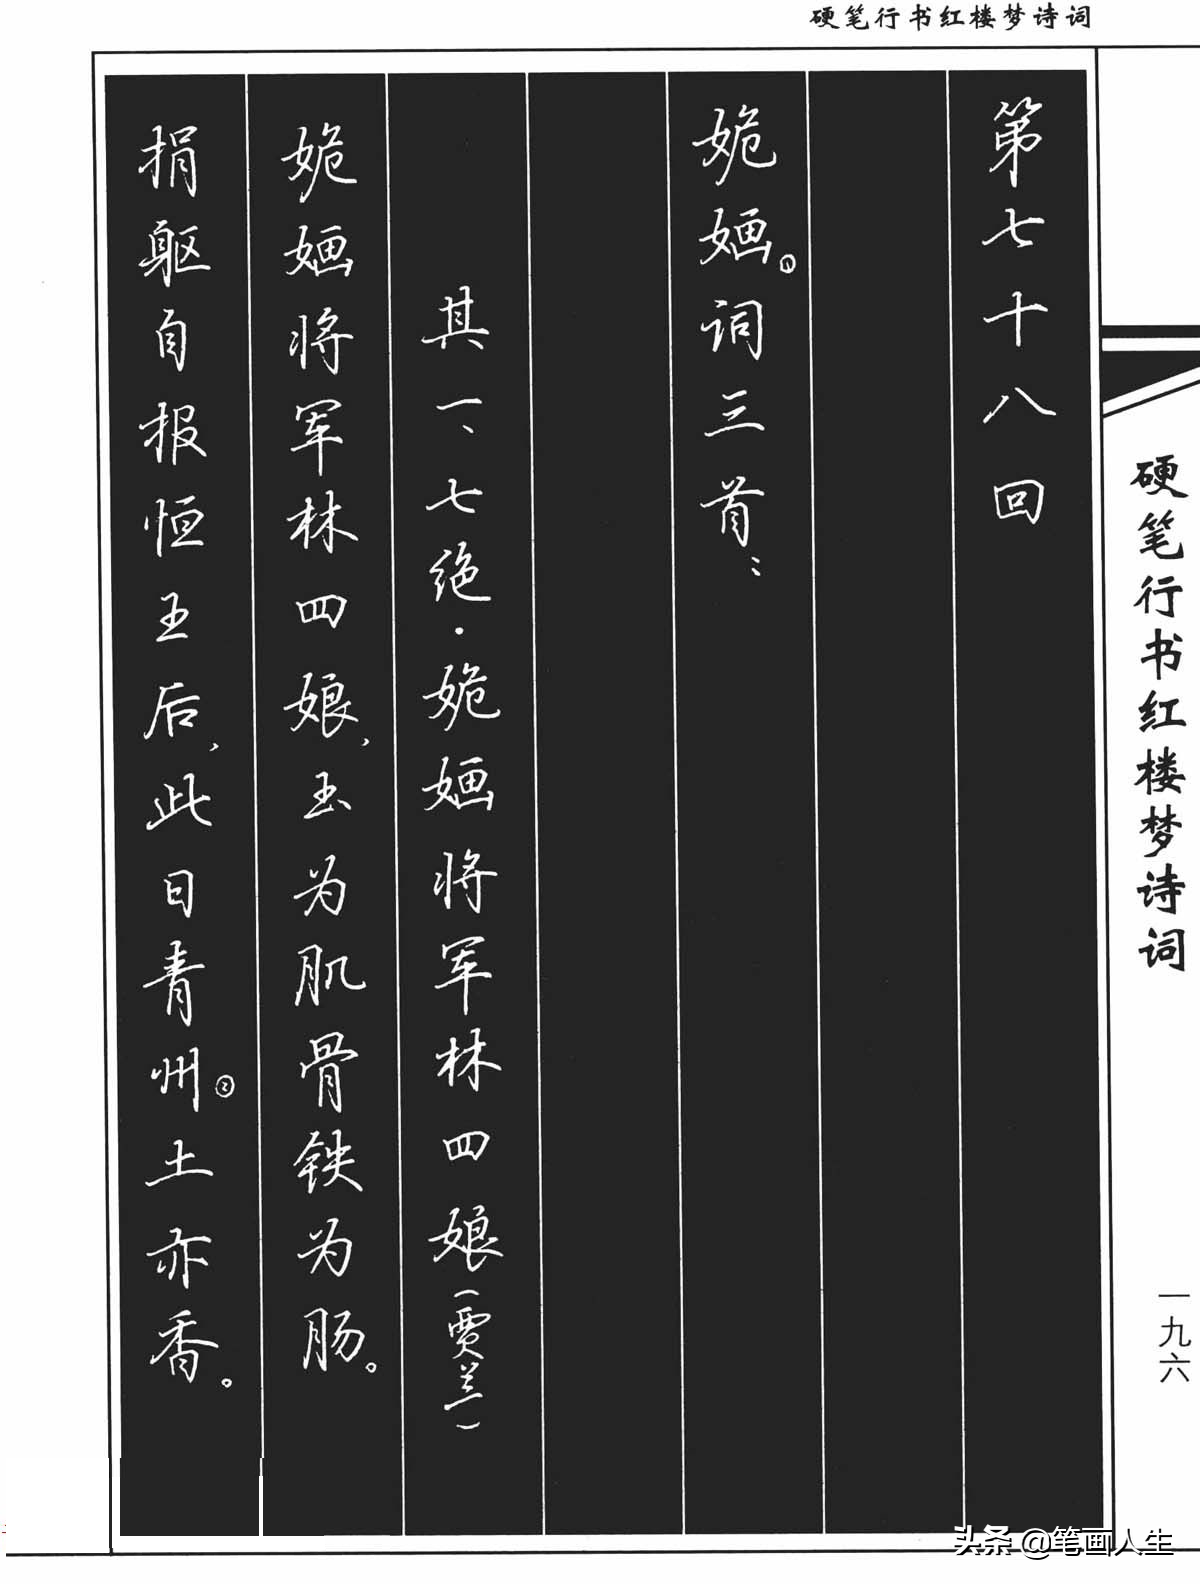 硬笔行书红楼梦诗词
第七十八回
姽婳①词三首：
其一、七绝·姽婳将军林四娘（贾兰）
姽婳将军林四娘，玉为肌骨铁为肠。
捐躯自报恒王后，此日青州②土亦香。
硬笔行书红楼梦诗词
一九六
头条 @笔画人生